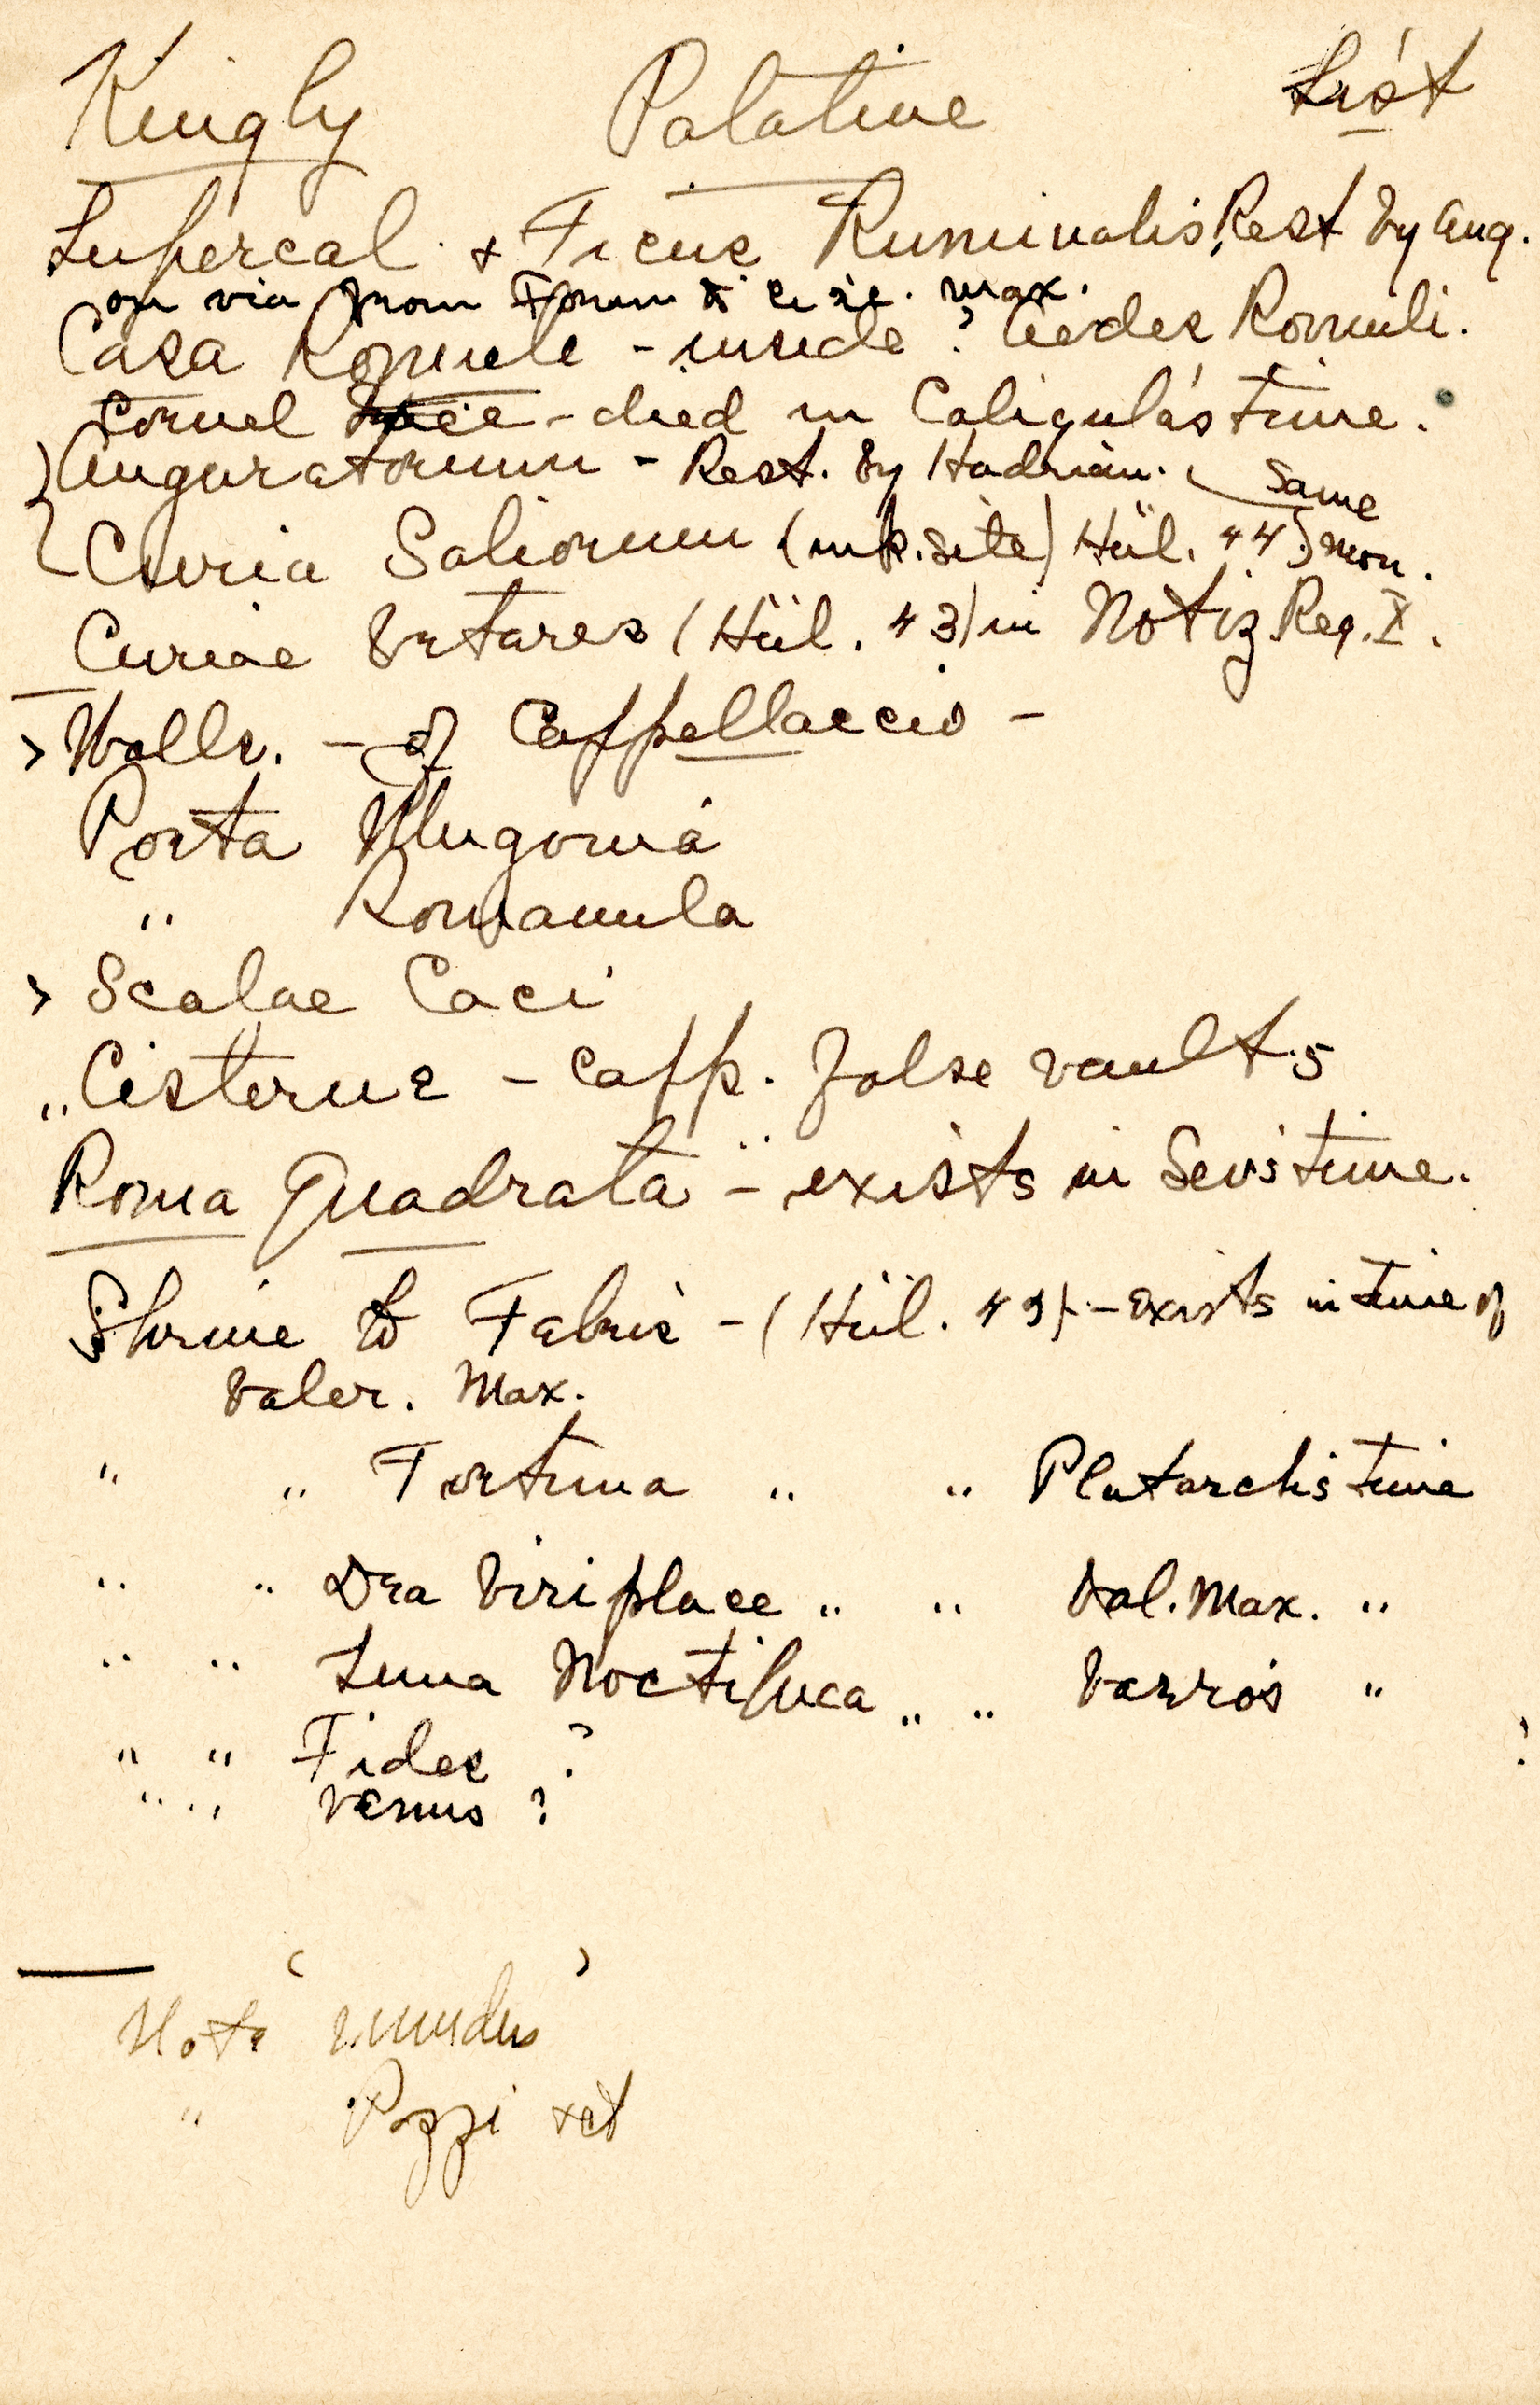 Kingly Palatine List
Lupercal & Ficus Ruminalis, Rest by Aug.
on via from Forum to Circ. Max.
Casa Romuli - inside? Aedes Romuli.
Cornel tree - died in Caligula's time.
Auguratorium - Rest. by Hadrian. Same
Curia Saliorum (unk. site) Hül. 44) Mon.
Curiae Veteres (Hül. 43) in Notiz Reg. X.
> Walls. - of Cappellaccio -
Porta Mugonia
" Romanula
> Scalae Caci
" Cisterns - Capp. false vaults
Roma Quadrata - exists in Sev's time.
Shrine to Febris - (Hül. 49) - exists in time of
Valer. Max.
" " Fortuna " " Plutarch's time
" " Dea Viriplaca " " Val. Max. "
" " Luna Noctiluca " " Varro's "
" " Fides ?
" " Venus ?
Note 'mundus'
" Pozzi